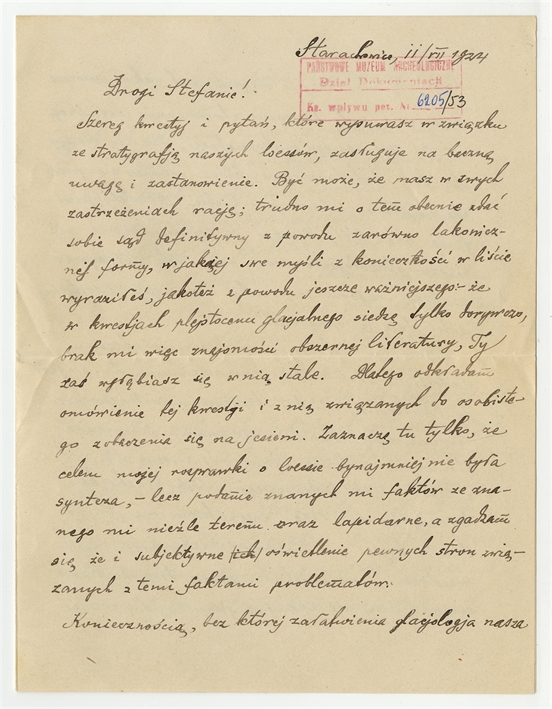 Starachowice, 11/VII 1924
PAŃSTWOWE MUZEUM ARCHEOLOGICZNE
Dział Dokumentacji
Ks. wpływu pet. Nr 6205/53
Drogi Stefanie!
Szereg kwestyj i pytań, które wysuwasz w związku
ze stratygrafją naszych loessów, zasługuje na baczną
uwagę i zastanowienie. Być może, że masz w swych
zastrzeżeniach rację; trudno mi o tem obecnie zdać
sobie sąd definitywny z powodu zarówno lakonicz-
nej formy, w jakiej swe myśli z konieczności w liście
wyraziłeś, jakoteż z powodu jeszcze ważniejszego:- że
w kwestjach plejstocenu glacjalnego siedzę tylko dorywczo,
brak mi więc znajomości obszernej literatury, Ty
zaś wgłębiasz się w nią stale. Dlatego odkładam
omówienie tej kwestji i z nią związanych do osobiste-
go zobaczenia się na jesieni. Zaznaczę tu tylko, że
celem mojej rozprawki o loessie bynajmniej nie była
synteza, – lecz podanie znanych mi faktów ze zna-
nego mi nieźle terenu oraz lapidarne, a zgadzam
się że i subjektywne (ich) oświetlenie pewnych stron zwią-
zanych z temi faktami problematów.
Koniecznością, bez której załatwienia glacjologja nasza